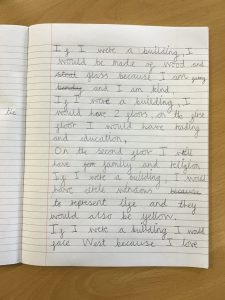 If I were a building, I
would be made of wood and
steel glass because I am
and I am kind.
If I were a building, I
would have 2 floors, on the first
floor I would have reading
and education,
On the second floor I well
have family and religion
If I were a building, I would
have circle windows because
to represent life and they
would also be yellow.
If I were a building I would
face West because I love